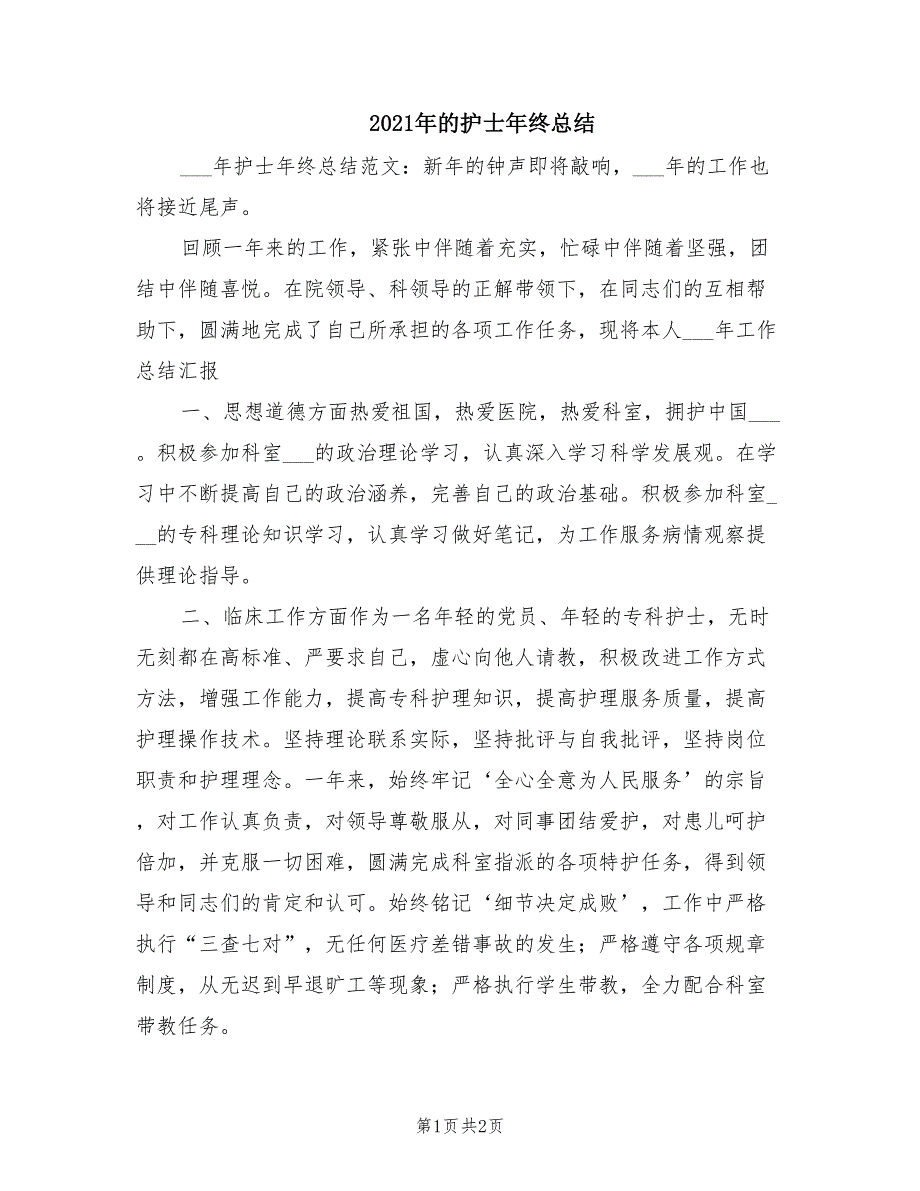 2021年的护士年终总结
___年护士年终总结范文：新年的钟声即将敲响，___年的工作也
将接近尾声。
回顾一年来的工作，紧张中伴随着充实，忙碌中伴随着坚强，团
结中伴随喜悦。在院领导、科领导的正解带领下，在同志们的互相帮
助下，圆满地完成了自己所承担的各项工作任务，现将本人___年工作
总结汇报
一、思想道德方面热爱祖国，热爱医院，热爱科室，拥护中国___
。积极参加科室___的政治理论学习，认真深入学习科学发展观。在学
习中不断提高自己的政治涵养，完善自己的政治基础。积极参加科室_
__的专科理论知识学习，认真学习做好笔记，为工作服务病情观察提
供理论指导。
二、临床工作方面作为一名年轻的党员、年轻的专科护士，无时
无刻都在高标准、严要求自己，虚心向他人请教，积极改进工作方式
方法，增强工作能力，提高专科护理知识，提高护理服务质量，提高
护理操作技术。坚持理论联系实际，坚持批评与自我批评，坚持岗位
职责和护理理念。一年来，始终牢记‘全心全意为人民服务’的宗旨
，对工作认真负责，对领导尊敬服从，对同事团结爱护，对患儿呵护
倍加，并克服一切困难，圆满完成科室指派的各项特护任务，得到领
导和同志们的肯定和认可。始终铭记‘细节决定成败’，工作中严格
执行“三查七对”，无任何医疗差错事故的发生；严格遵守各项规章
制度，从无迟到早退旷工等现象；严格执行学生带教，全力配合科室
带教任务。
第1页共2页